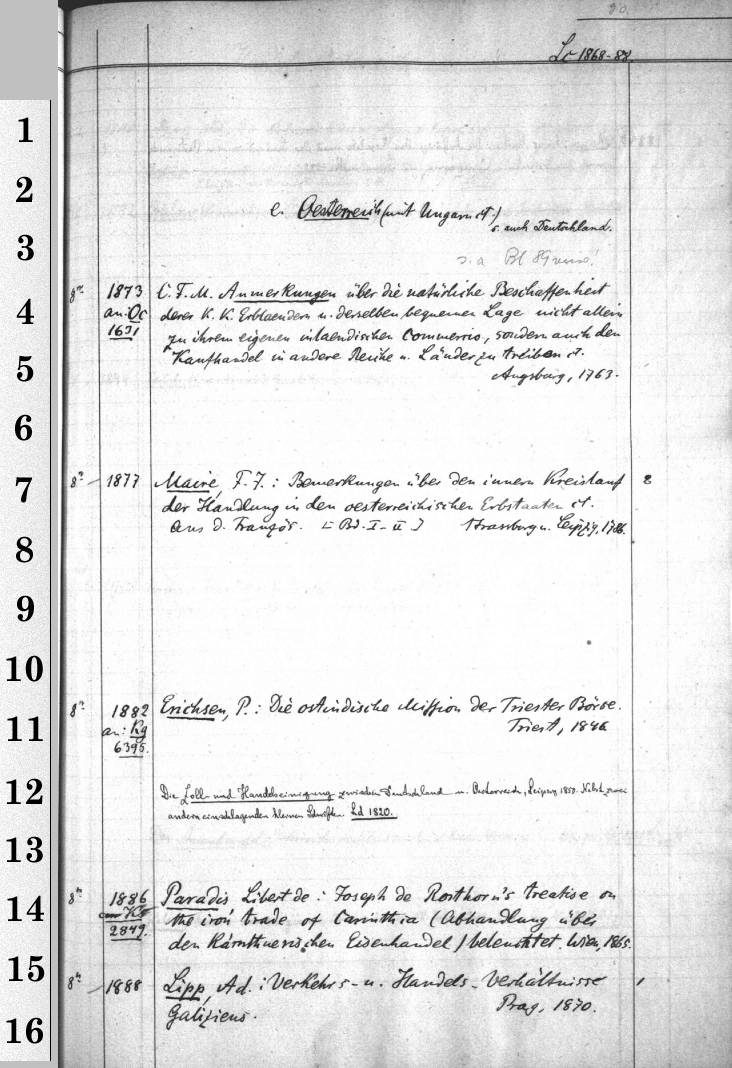 30.
Lc 1868-88.
1
2
e. Oesterreich (mit Ungarn et.)
s. auch Deutschland.
3
s. a Bl
8° 1873 C. F. M. Anmerkungen über die natürliche Beschaffenheit
4
an: Oc derer K. K. Erblaendern u. derselben bequemen Lage nicht allein
1631 zu ihrem eigenen inlaendischen Commercio, sondern auch den
Kaufhandel in andere Reiche u. Länder zu treiben et.
5
Augsburg, 1763.
6
7
8° 1877 Maire, F. J.: Bemerkungen über den innern Kreislauf 2
der Handlung in den oesterreichischen Erbstaaten et.
Aus d. Französ. [Bd. I-II] Strassburg u. Leipzig, 1786.
8
9
10
8° 1882 Erichsen, P.: Die ostindische Mission der Triester Börse.
11
an: Kg Triest, 1846
6395.
12
Die Zoll- und Handelseinigung zwischen Deutschland u. Oesterreich, Leipzig, 1850. Nebst zwei
andern einschlagenden kleinen Schriften. Ld 1820.
13
8° 1886 Paradis, Libert de: Joseph de Rosthorn's treatise on
14
an Kg the iron trade of Carinthia (Abhandlung über
2849. den Kärnthnerischen Eisenhandel) beleuchtet. Wien, 1865.
15
8° 1888 Lipp, Ad.: Verkehrs- u. Handels-Verhältnisse 1
Galiziens. Prag, 1870.
16